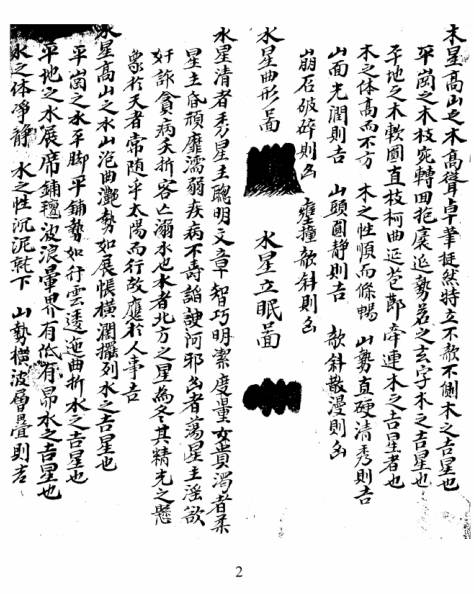 木星高山之木高聳卓挺然特立不欹不側木之吉星也
平崗之木枝宛轉回抱裹迤勢若之玄字木之吉星也
平地之木軟圓直枝柯曲迤苞節牽連木之吉星者也
木之体高而不方 木之性順而條暢 山勢直硬清秀則吉
山面光潤則吉 山頭圓静則吉 欹斜散漫則凶
崩石破碎則凶 壅撞欹斜則凶
水星曲形啚 水星立眠啚
水星清者秀星主聰明文章智巧明潔度量女貴濁者柔
星主低頑靡濡弱疾病不壽謟諛河邪凶者蕩星主淫欲
奸詐貪病夭折客亡溺水也水者北方之星為冬其精光之懸
象於天者常随乎太陽而行故應於人事吉
水星高山之水山泡曲灔勢如展悵橫濶擺列水之吉星也
平崗之水平脚平鋪勢如行雲逶迤曲折水之吉星也
平地之水展席鋪氊波浪暈界有低有昂水之吉星也
水之体淨静 水之性沉泥就下 山勢橫波層疊則吉
2